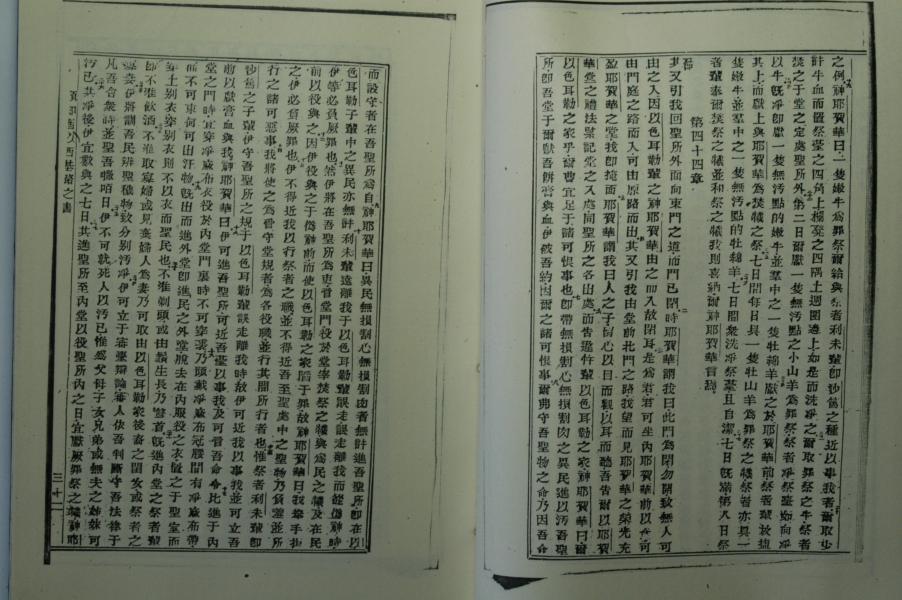 之例神耶賀華曰一隻嫩牛爲罪祭爾給與祭者利未輩卽沙篤之種近以事我者爾取少
許牛血而置祭臺之四角上檯凳之四隅上週圍邊上如是而洗淨之爾取罪祭之牛祭者
焚之于堂之定處聖所外第二日爾獻一隻無汚點之小山羊爲罪祭祭者淨祭臺如向淨
以牛旣淨卽獻一隻無汚點的嫩牛並羣中之一隻無汚點的牡綿羊獻之於耶賀華前祭者放塩
其上而獻上與耶賀華爲焚犧之祭七日間每日具一隻牡山羊爲罪祭之犧祭者亦具一
隻嫩牛並羣中之一隻無汚點的牡綿羊七日間衆洗淨祭臺且自潔七日旣滿第八日祭
者輩奉爾焚祭之犧並和祭之犧我則喜納爾神耶賀華言焉
第四十四章
其又引我回聖所外面向東門之道而門已閉時耶賀華謂我曰此門爲閉勿開致無人可
由之入因以色耳勒輩之神耶賀華由之而入故閉耳是爲君君可坐內耶賀華前以食可
由門庭之路而入可由原路而出其又引我由堂前北門之路我望而見耶賀華之榮光充
盈耶賀華之堂我卽掩面耶賀華謂我曰人之子留心以目而觀以耳而聽吾告爾以耶賀
華堂之禮法並記堂之入處同聖所之各出處而告違忤輩以色耳勒之家神耶賀華曰爾
以色耳勒之家乎爾曹宜足于諸可恨事也卽帶無損割心無損割肉之異民進以汚吾聖
所卽吾堂于爾獻吾餅膏與血伊敗吾約因爾之諸可恨事爾弗守吾聖物之命乃因吾命
而設守者在吾聖所爲自神耶賀華曰異民無損割心無損割肉者無許進吾聖所卽在以
色耳勒子輩中之異民亦無許利未輩遠離我于以色耳勒輩誤走誤走離我而從僞神時
伊等必負厥罪也然伊將在吾聖所爲吏看堂門役於堂宰焚祭之犧與爲民之犧及在民
前以役與之因伊役與之于僞神前而使以色耳勒之家陷于罪故神耶賀華曰我舉手指
之伊必負厥罪也伊不得近我以行祭者之職並不得近吾至聖處中之聖物乃負羞並所
行之諸可惡事我將使之爲看守堂規者爲各役職並行其間所行者也惟祭者利未輩卽
沙篤之子輩伊守吾聖所之規于以色耳勒輩誤走離我時故伊可近我以事我並可立吾
前以獻膏血與我神耶賀華曰伊可進吾聖所可近吾臺以事我及可看吾命伊進于內
堂之門時宜穿淨麻布衣役於內堂門裏時不可穿裘乃頭戴淨麻布冠腰間有淨麻布帶
而不可束何可出汗物旣出而進外堂卽進民之外堂脫去在內服役之衣儲之于聖室而
穿上別衣則不以衣而聖民也不准剃頭或由鬚生長乃剪首旣進內堂之祭者輩
卽不准飲酒不准取寡婦或見棄婦人爲妻乃可取由以色耳勒家後裔之閨女或祭者之
寡妾伊將訓吾民辨聖穢物致分別汚淨伊可立于審臺辯論審人依吾判斷守吾法律于
凡吾合衆時並聖吾嗽咟日伊不可就死人以汚己惟爲父母子女兄弟或無夫之姊妹可
汚己其淨後伊宜數與之七日其進聖所至內堂以役聖所內之日宜獻厥罪祭之犧神耶
三十